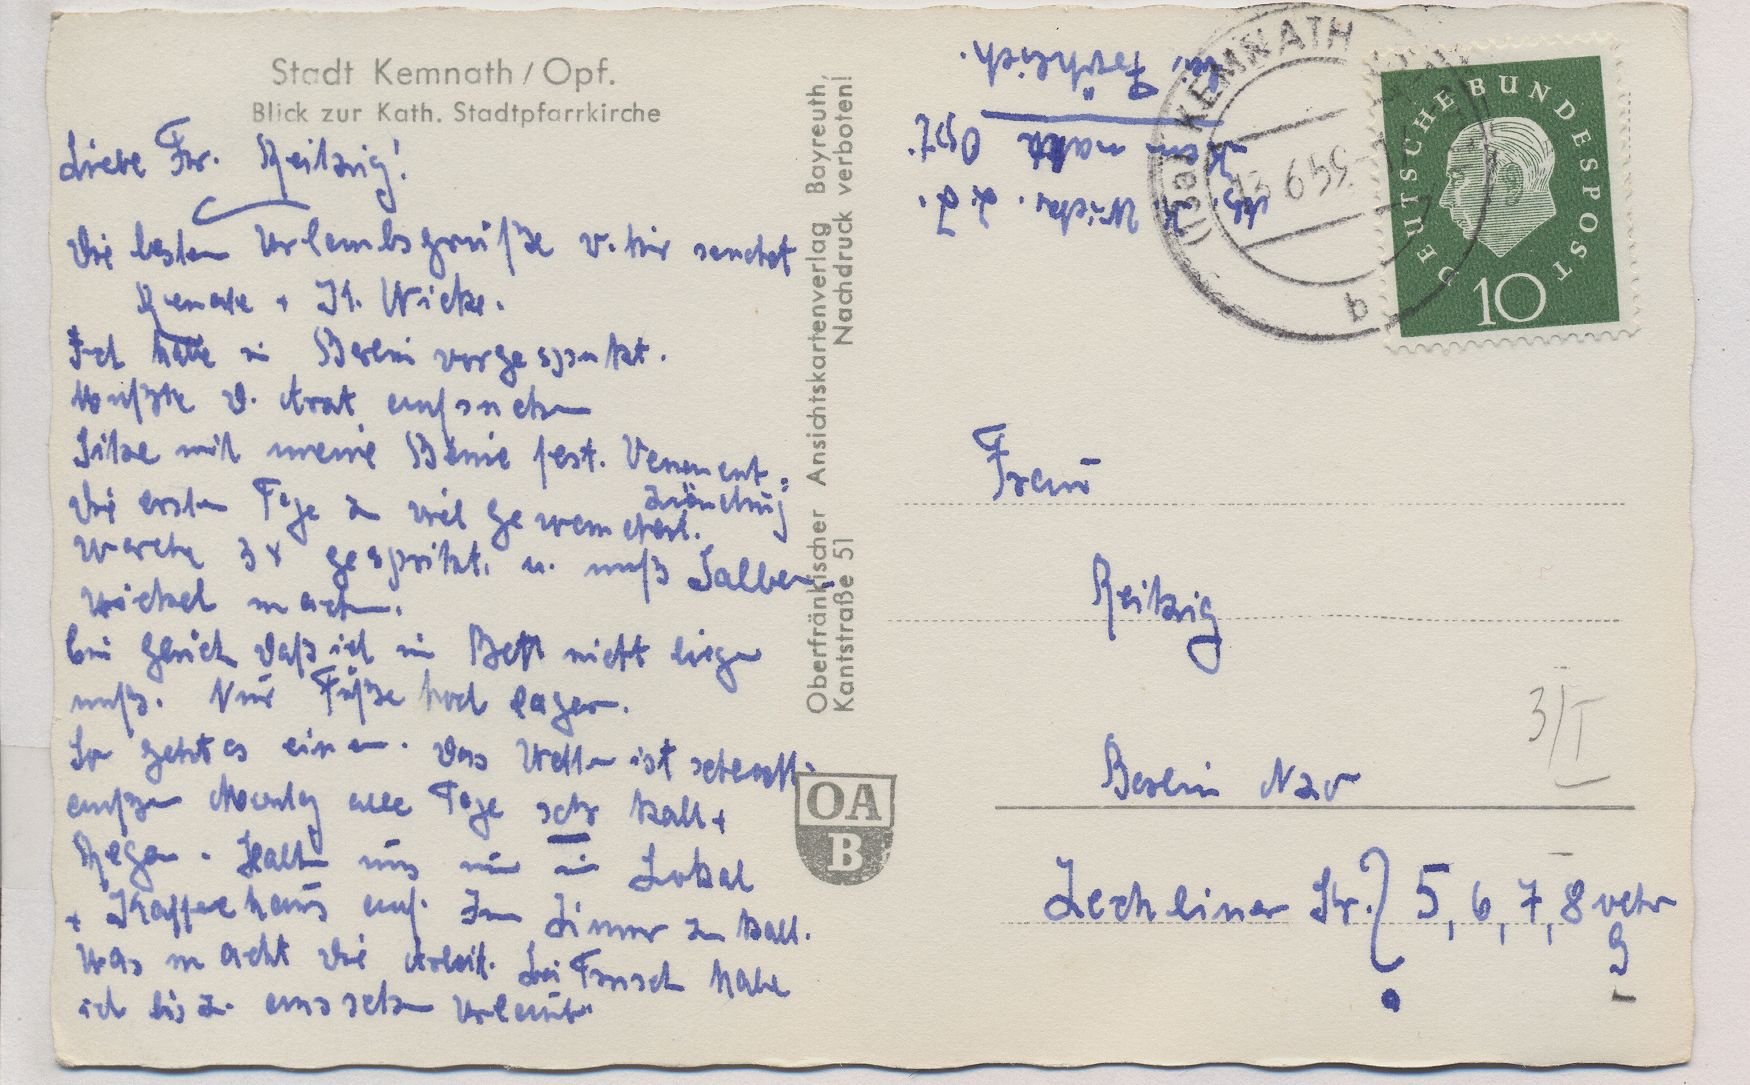 Stadt Kemnath/Opf.
Blick zur Kath. Stadtpfarrkirche
Liebe Fr. Reitzig!
Die besten Urlaubsgrüße v. hir sendet
Renate + H. Wicke.
Ich habe in Berlin vorgespukt.
Mußte d. Arzt aufsuchen
Sitze mit meine Beine fest. Venenent-
zündung
Die ersten Tage zu viel gewandert.
Werde 3x gespritzt. u. muß Salben-
wickel machen.
bin glücklich daß ich im Bett nicht liegen
muß. Nur Füße hoch lagern.
So geht es einen. Das Wetter ist schlecht
außer Montag alle Tage sehr kalt +
Regen. Halten uns nur im Lokal
+ Kaffeehaus auf. Im Zimmer zu kalt.
Was macht die Arbeit. Bei Frisch habe
ich bis z. Urlaub
Oberfränkischer Ansichtskartenverlag Bayreuth,
Kantstraße 51 Nachdruck verboten!
OA
B
Abs. Wicke. z. Z.
Kemnath Opf.
bei Fröhlich.
(1Ja) KEMNATH
13.9.59
b
DEUTSCHE BUNDESPOST
10
Frau
Reitzig
3/I
Berlin
Zechliner Str.? 5, 6, 7, 8 oder
9